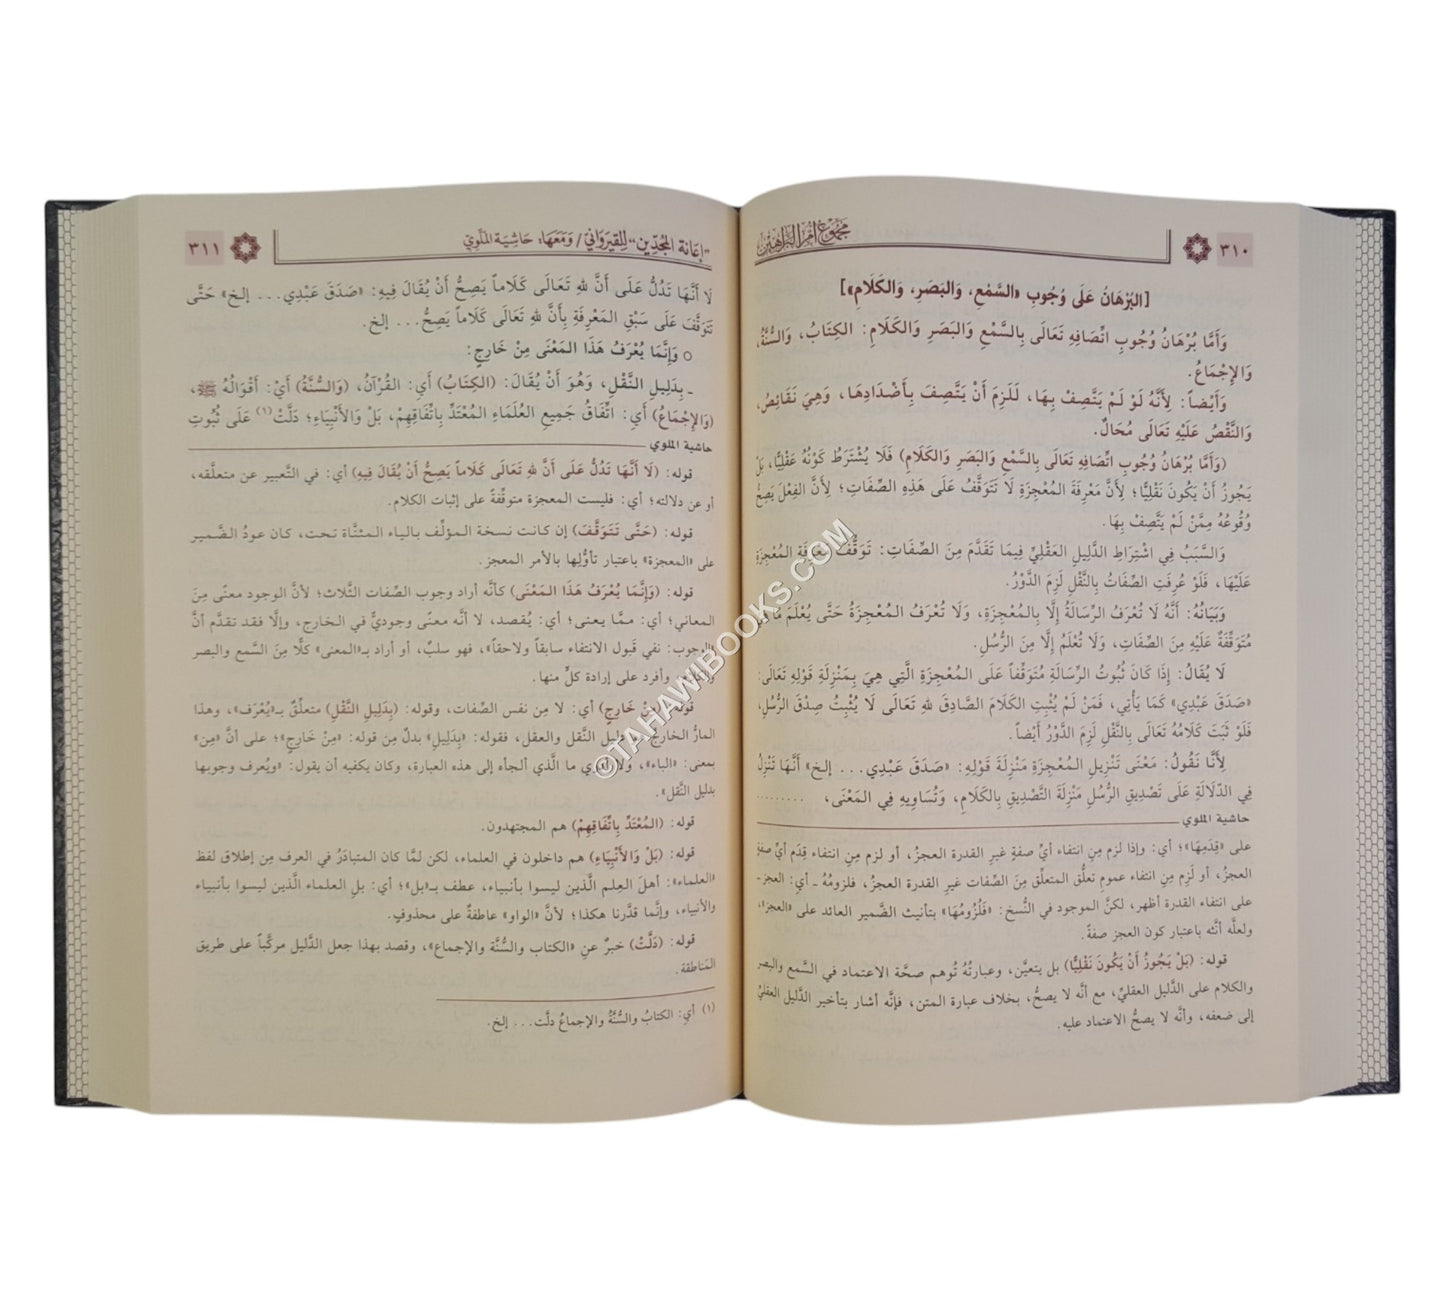 ٣١٠
مجموع أم البراهين
[البُرْهَانُ عَلَى وُجُوبِ «السَّمْعِ، وَالبَصَرِ، وَالكَلَامِ»]
وَأَمَّا بُرْهَانُ وُجُوبِ اتِّصَافِهِ تَعَالَى بِالسَّمْعِ وَالبَصَرِ وَالكَلَامِ: الكِتَابُ، وَالسُّنَّةُ،
وَالإِجْمَاعُ.
وَأَيْضاً: لِأَنَّهُ لَوْ لَمْ يَتَّصِفْ بِهَا، لَلَزِمَ أَنْ يَتَّصِفَ بِأَضْدَادِهَا، وَهِيَ نَقَائِصُ،
وَالنَّقْصُ عَلَيْهِ تَعَالَى مُحَالٌ.
(وَأَمَّا بُرْهَانُ وُجُوبِ اتِّصَافِهِ تَعَالَى بِالسَّمْعِ وَالبَصَرِ وَالكَلَامِ) فَلَا يُشْتَرَطُ كَوْنُهُ عَقْلِيًّا، بَلْ
يَجُوزُ أَنْ يَكُونَ نَقْلِيًّا؛ لِأَنَّ مَعْرِفَةَ المُعْجِزَةِ لَا تَتَوَقَّفُ عَلَى هَذِهِ الصِّفَاتِ؛ لِأَنَّ الفِعْلَ يَصِحُّ
وُقُوعُهُ مِمَّنْ لَمْ يَتَّصِفْ بِهَا.
وَالسَّبَبُ فِي اشْتِرَاطِ الدَّلِيلِ العَقْلِيِّ فِيمَا تَقَدَّمَ مِنَ الصِّفَاتِ: تَوَقُّفُ مَعْرِفَةِ المُعْجِزَةِ
عَلَيْهَا، فَلَوْ عُرِفَتِ الصِّفَاتُ بِالنَّقْلِ لَزِمَ الدَّوْرُ.
وَبَيَانُهُ: أَنَّهُ لَا تُعْرَفُ الرِّسَالَةُ إِلَّا بِالمُعْجِزَةِ، وَلَا تُعْرَفُ المُعْجِزَةُ حَتَّى يُعْلَمَ مَا هِيَ
مُتَوَقِّفَةٌ عَلَيْهِ مِنَ الصِّفَاتِ، وَلَا تُعْلَمُ إِلَّا مِنَ الرُّسُلِ.
لَا يُقَالُ: إِذَا كَانَ ثُبُوتُ الرِّسَالَةِ مُتَوَقِّفاً عَلَى المُعْجِزَةِ الَّتِي هِيَ بِمَنْزِلَةِ قَوْلِهِ تَعَالَى:
«صَدَقَ عَبْدِي» كَمَا يَأْتِي، فَمَنْ لَمْ يُثْبِتِ الكَلَامَ الصَّادِقَ للهِ تَعَالَى لَا يُثْبِتُ صِدْقَ الرُّسُلِ،
فَلَوْ ثَبَتَ كَلَامُهُ تَعَالَى بِالنَّقْلِ لَزِمَ الدَّوْرُ أَيْضاً.
لِأَنَّا نَقُولُ: مَعْنَى تَنْزِيلِ المُعْجِزَةِ مَنْزِلَةَ قَوْلِهِ: «صَدَقَ عَبْدِي... إلخ» أَنَّهَا تَنْزِلُ
فِي الدِّلَالَةِ عَلَى تَصْدِيقِ الرُّسُلِ مَنْزِلَةَ التَّصْدِيقِ بِالكَلَامِ، وَتُسَاوِيهِ فِي المَعْنَى، .........
حاشية الملوي
على «قِدَمِهَا»؛ أي: وإذا لزم مِنِ انتفاء أيِّ صفةٍ غيرِ القدرة العجزُ، أو لزم مِنِ انتفاء قِدَم أيِّ صفةٍ
العجزُ، أو لَزِم مِنِ انتفاء عمومِ تعلُّق المتعلِّق مِنَ الصِّفات غيرِ القدرة العجزُ، فلزومُهُ ـ أي: العجزِ ـ
على انتفاء القدرة أظهر، لكنَّ الموجود في النُّسخ: «فَلُزُومُهَا» بتأنيث الضَّمير العائد على «العجز»،
ولعلَّه أنَّثه باعتبار كون العجز صفةً.
قوله: (بَلْ يَجُوزُ أَنْ يَكُونَ نَقْلِيًّا) بل يتعيَّن، وعبارتُهُ تُوهم صحَّة الاعتماد في السَّمع والبصر
والكلام على الدَّليل العقليِّ، مع أنَّه لا يصحُّ، بخلاف عبارة المتن، فإنَّه أشار بتأخير الدَّليل العقليِّ
إلى ضعفه، وأنَّه لا يصحُّ الاعتماد عليه.
"إعانة المجدّين" للقيرواني / ومعها: حاشية الملّوي
٣١١
لَا أَنَّهَا تَدُلُّ عَلَى أَنَّ للهِ تَعَالَى كَلَاماً يَصِحُّ أَنْ يُقَالَ فِيهِ: «صَدَقَ عَبْدِي... إلخ» حَتَّى
تَتَوَقَّفَ عَلَى سَبْقِ المَعْرِفَةِ بِأَنَّ للهِ تَعَالَى كَلَاماً يَصِحُّ... إلخ.
○ وَإِنَّمَا يُعْرَفُ هَذَا المَعْنَى مِنْ خَارِجٍ:
ـ بِدَلِيلِ النَّقْلِ، وَهُوَ أَنْ يُقَالَ: (الكِتَابُ) أَيِ: القُرْآنُ، (وَالسُّنَّةُ) أَيْ: أَقْوَالُهُ ﷺ،
(وَالإِجْمَاعُ) أَيِ: اتِّفَاقُ جَمِيعِ العُلَمَاءِ المُعْتَدِّ بِاتِّفَاقِهِمْ، بَلْ وَالأَنْبِيَاءِ؛ دَلَّتْ(١) عَلَى ثُبُوتِ
حاشية الملوي
قوله: (لَا أَنَّهَا تَدُلُّ عَلَى أَنَّ للهِ تَعَالَى كَلَاماً يَصِحُّ أَنْ يُقَالَ فِيهِ) أي: في التَّعبير عن متعلَّقه،
أو عن دلالته؛ أي: فليست المعجزة متوقِّفةً على إثبات الكلام.
قوله: (حَتَّى تَتَوَقَّفَ) إن كانت نسخة المؤلِّف بالياء المثنَّاة تحت، كان عودُ الضَّمير
على «المعجزة» باعتبار تأوُّلِها بالأمر المعجز.
قوله: (وَإِنَّمَا يُعْرَفُ هَذَا المَعْنَى) كأنَّه أراد وجوب الصِّفات الثَّلاث؛ لأنَّ الوجود معنًى مِنَ
المعاني؛ أي: ممَّا يعنى؛ أي: يُقصد، لا أنَّه معنًى وجوديٌّ في الخارج، وإلَّا فقد تقدَّم أنَّ
الوجوب: نفي قَبول الانتفاء سابقاً ولاحقاً»، فهو سلبٌ، أو أراد بـ«المعنى» كلًّا مِنَ السَّمع والبصر
والكلام، وأفرد على إرادة كلٍّ منها.
قوله: (مِنْ خَارِجٍ) أي: لا مِن نفس الصِّفات، وقوله: (بِدَلِيلِ النَّقْلِ) متعلِّقٌ بـ«يُعْرَف»، وهذا
المارُّ الخارج هو دليل النَّقل والعقل، فقوله: «بِدَلِيلِ» بدلٌ مِن قوله: «مِنْ خَارِجٍ»؛ على أنَّ «مِن»
بمعنى: «الباء»، ولا أدري ما الَّذي ألجأه إلى هذه العبارة، وكان يكفيه أن يقول: «ويُعرف وجوبها
بدليل النَّقل».
قوله: (المُعْتَدِّ بِاتِّفَاقِهِمْ) هم المجتهدون.
قوله: (بَلْ وَالأَنْبِيَاءِ) هم داخلون في العلماء، لكن لمَّا كان المتبادَرُ في العرف مِن إطلاق لفظ
«العلماء»: أهلَ العِلم الَّذين ليسوا بأنبياء، عطف بـ«بل»؛ أي: بلِ العلماء الَّذين ليسوا بأنبياء
والأنبياء، وإنَّما قدَّرنا هكذا؛ لأنَّ «الواو» عاطفةٌ على محذوفٍ.
قوله: (دَلَّتْ) خبرٌ عنِ «الكتاب والسُّنَّة والإجماع»، وقصد بهذا جعل الدَّليل مركَّباً على طريق
المَناطقة.
(١) أي: الكتابُ والسُّنَّةُ والإجماعُ دلَّت... إلخ.
©TAHAWIBOOKS.COM